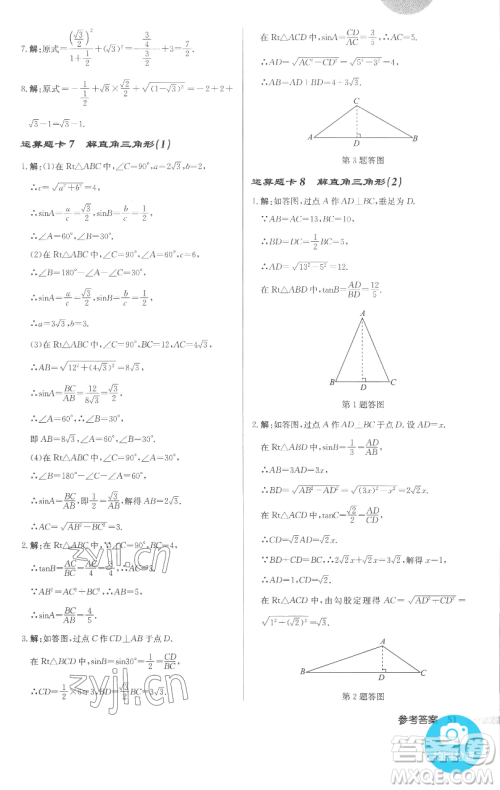 7.解:原式=(√3/2)²/(1+1/2)+(√3)²=(3/4)/(3/2)+3=7/2.
8.解:原式=-1/(1/2)+√8×√2/2+√(1-√3)²=-2+2+
√3-1=√3-1.
运算题卡7 解直角三角形(1)
1.解:(1)在Rt△ABC中,∠C=90°,a=2√3,b=2,
∴c=√(a²+b²)=4.
∴sinA=a/c=√3/2,sinB=b/c=1/2.
∴∠A=60°,∠B=30°.
(2)在Rt△ABC中,∠C=90°,∠A=60°,
∴∠B=180°-∠A-∠C=30°.
∵sinA=a/c=√3/2,c=6,
∴a=3√3,b=3.
(3)在Rt△ABC中,
AB=√(12²+(4√3)²)=8√3,
∴sinA=BC/AB=12/8√3=√3/2.
∴∠A=60°,∠B=30°,
即AB=8√3,∠A=60°,∠B=30°.
(4)在Rt△ABC中,∠C=90°,∠B=60°,
∴∠A=180°-∠C-∠B=30°.
∴sinA=BC/AB,即1/2=√3/AB,解得AB=2√3.
∴AC=√(AB²-BC²)=3.
2.解:在Rt△ABC中,∠C=90°,BC=4,
∴tanB=AC/BC=AC/4=3/4,∴AC=3.
∵AB²=AC²+BC²,∴AB=5.
∴sinB=AC/AB,cosB=BC/AB=4/5.
3.解:如答图,过点C作CD⊥AB于点D.
在Rt△BCD中,sinB=sin30°=CD/BC=1/2,
∴CD=1/2×BC=1/2×6=3.
在Rt△ACD中,sinA=CD/AC=3/5,∴AC=5.
∴AD=√(AC²-CD²)=√(5²-3²)=4.
C
A
D
B
第3题答图
运算题卡8 解直角三角形(2)
1.解:如答图,过点A作AD⊥BC,垂足为D.
∵AB=AC=13,BC=10,
∴BD=1/2BC=5.
∴AD=√(13²-5²)=12.
∴在Rt△ABD中,tanB=AD/BD=12/5.
A
B
D
C
第1题答图
2.解:如答图,过点A作AD⊥BC于点D.设AD=x.
在Rt△ABD中,∵sinB=1/3=AD/AB,
∴AB=3AD=3x.
∴BD=√(AB²-AD²)=√((3x)²-x²)=2√2x.
在Rt△ACD中,∵tanC=√2/2=AD/CD,
∴CD=√2x.
∵BD+CD=BC,∴2√2x+√2x=3√2,解得x=1.
∴AD=1,CD=√2.
在Rt△ACD中,由勾股定理得AC=√(AD²+CD²)
=√(1²+(√2)²)=√3.
A
B
D
C
第2题答图
参考答案 51
zyjl.cn
zyjl.cn